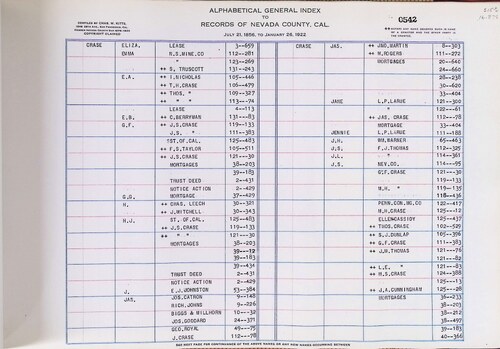 ALPHABETICAL GENERAL INDEX
TO
RECORDS OF NEVADA COUNTY, CAL.
JULY 21, 1856, TO JANUARY 28, 1922
COMPILED BY CHAS. W. KITTS,
COPYRIGHT CLAIMED
0542
CRASE ELIZA, LEASE 3—659
EMMA R.S.MINE.CO 112—281
" " 119—233
++ S, TRUSCOTT 131—243
E.A. ++ I.NICHOLAS 105—446
++ T.H.CRASE 106—479
++ THOS, " 109—327
++ " " 113—74
LEASE 4—113
E.B, ++ C.BERRYMAN 131—83
G.F. ++ J.S.CRASE 119—133
J.S. " 111—383
1ST.OF.CAL. 125—483
++ F.S.TAYLOR 105—511
++ J.S.CRASE 121—30
MORTGAGES 38—203
39—183
TRUST DEED 2—431
NOTICE ACTION 2—429
G.G. MORTGAGE 37—429
H. ++ CHAS, LEECH 30—321
++ J.MITCHELL 30—343
H.J. ST, OF.CAL, 125—483
++ J.S.CRASE 119—133
++ " " 121—30
MORTGAGES 38—203
39—183
39—434
TRUST DEED 2—431
NOTICE ACTION 2—429
J. E.J.JOHNSTON 53—384
JAS, JOS.CATRON 9—148
RICH.JOHNS 9—226
BIGGS & MILLHORN 10—32
JOS.GOODARD 24—371
GEO.ROYAL 49—75
J.CRASE 112—78
CRASE JAS, ++ JNO,MARTIN 8—303
++ H.ROGERS 111—272
MORTGAGES 20—540
24—660
28—238
30—620
33—404
JANE L.P.LARUE 121—300
" 122—61
++ JAS, CRASE 112—78
MORTGAGE 33—404
JENNIE L.P.LARUE 111—188
J.H. WM.WARNER 65—463
J.S. F.J.THOMAS 112—325
J.L. " 114—361
J.S. NEV.CO. 114—95
G.F.CRASE 121—30
" 119—133
M.H, " 119—135
" 118—436
PENN.CON.MG.CO 122—417
M.H.CRASE 125—117
ELLEN CASSIDY 125—437
++ THOS,CRASE 102—529
++ S.J.DUNLAP 105—396
++ G.F.CRASE 111—383
++ J.H.THOMAS 121—76
121—62
++ L.E, " 121—83
++ M.S.CRASE 124—388
125—113
++ J.A.CUNNINGHAM 125—28
MORTGAGES 36—233
38—203
38—212
38—497
39—183
40—366
SEE NEXT PAGE FOR CONTINUANCE OF THE ABOVE NAMES OR ANY NEW NAMES OCCURRING BETWEEN